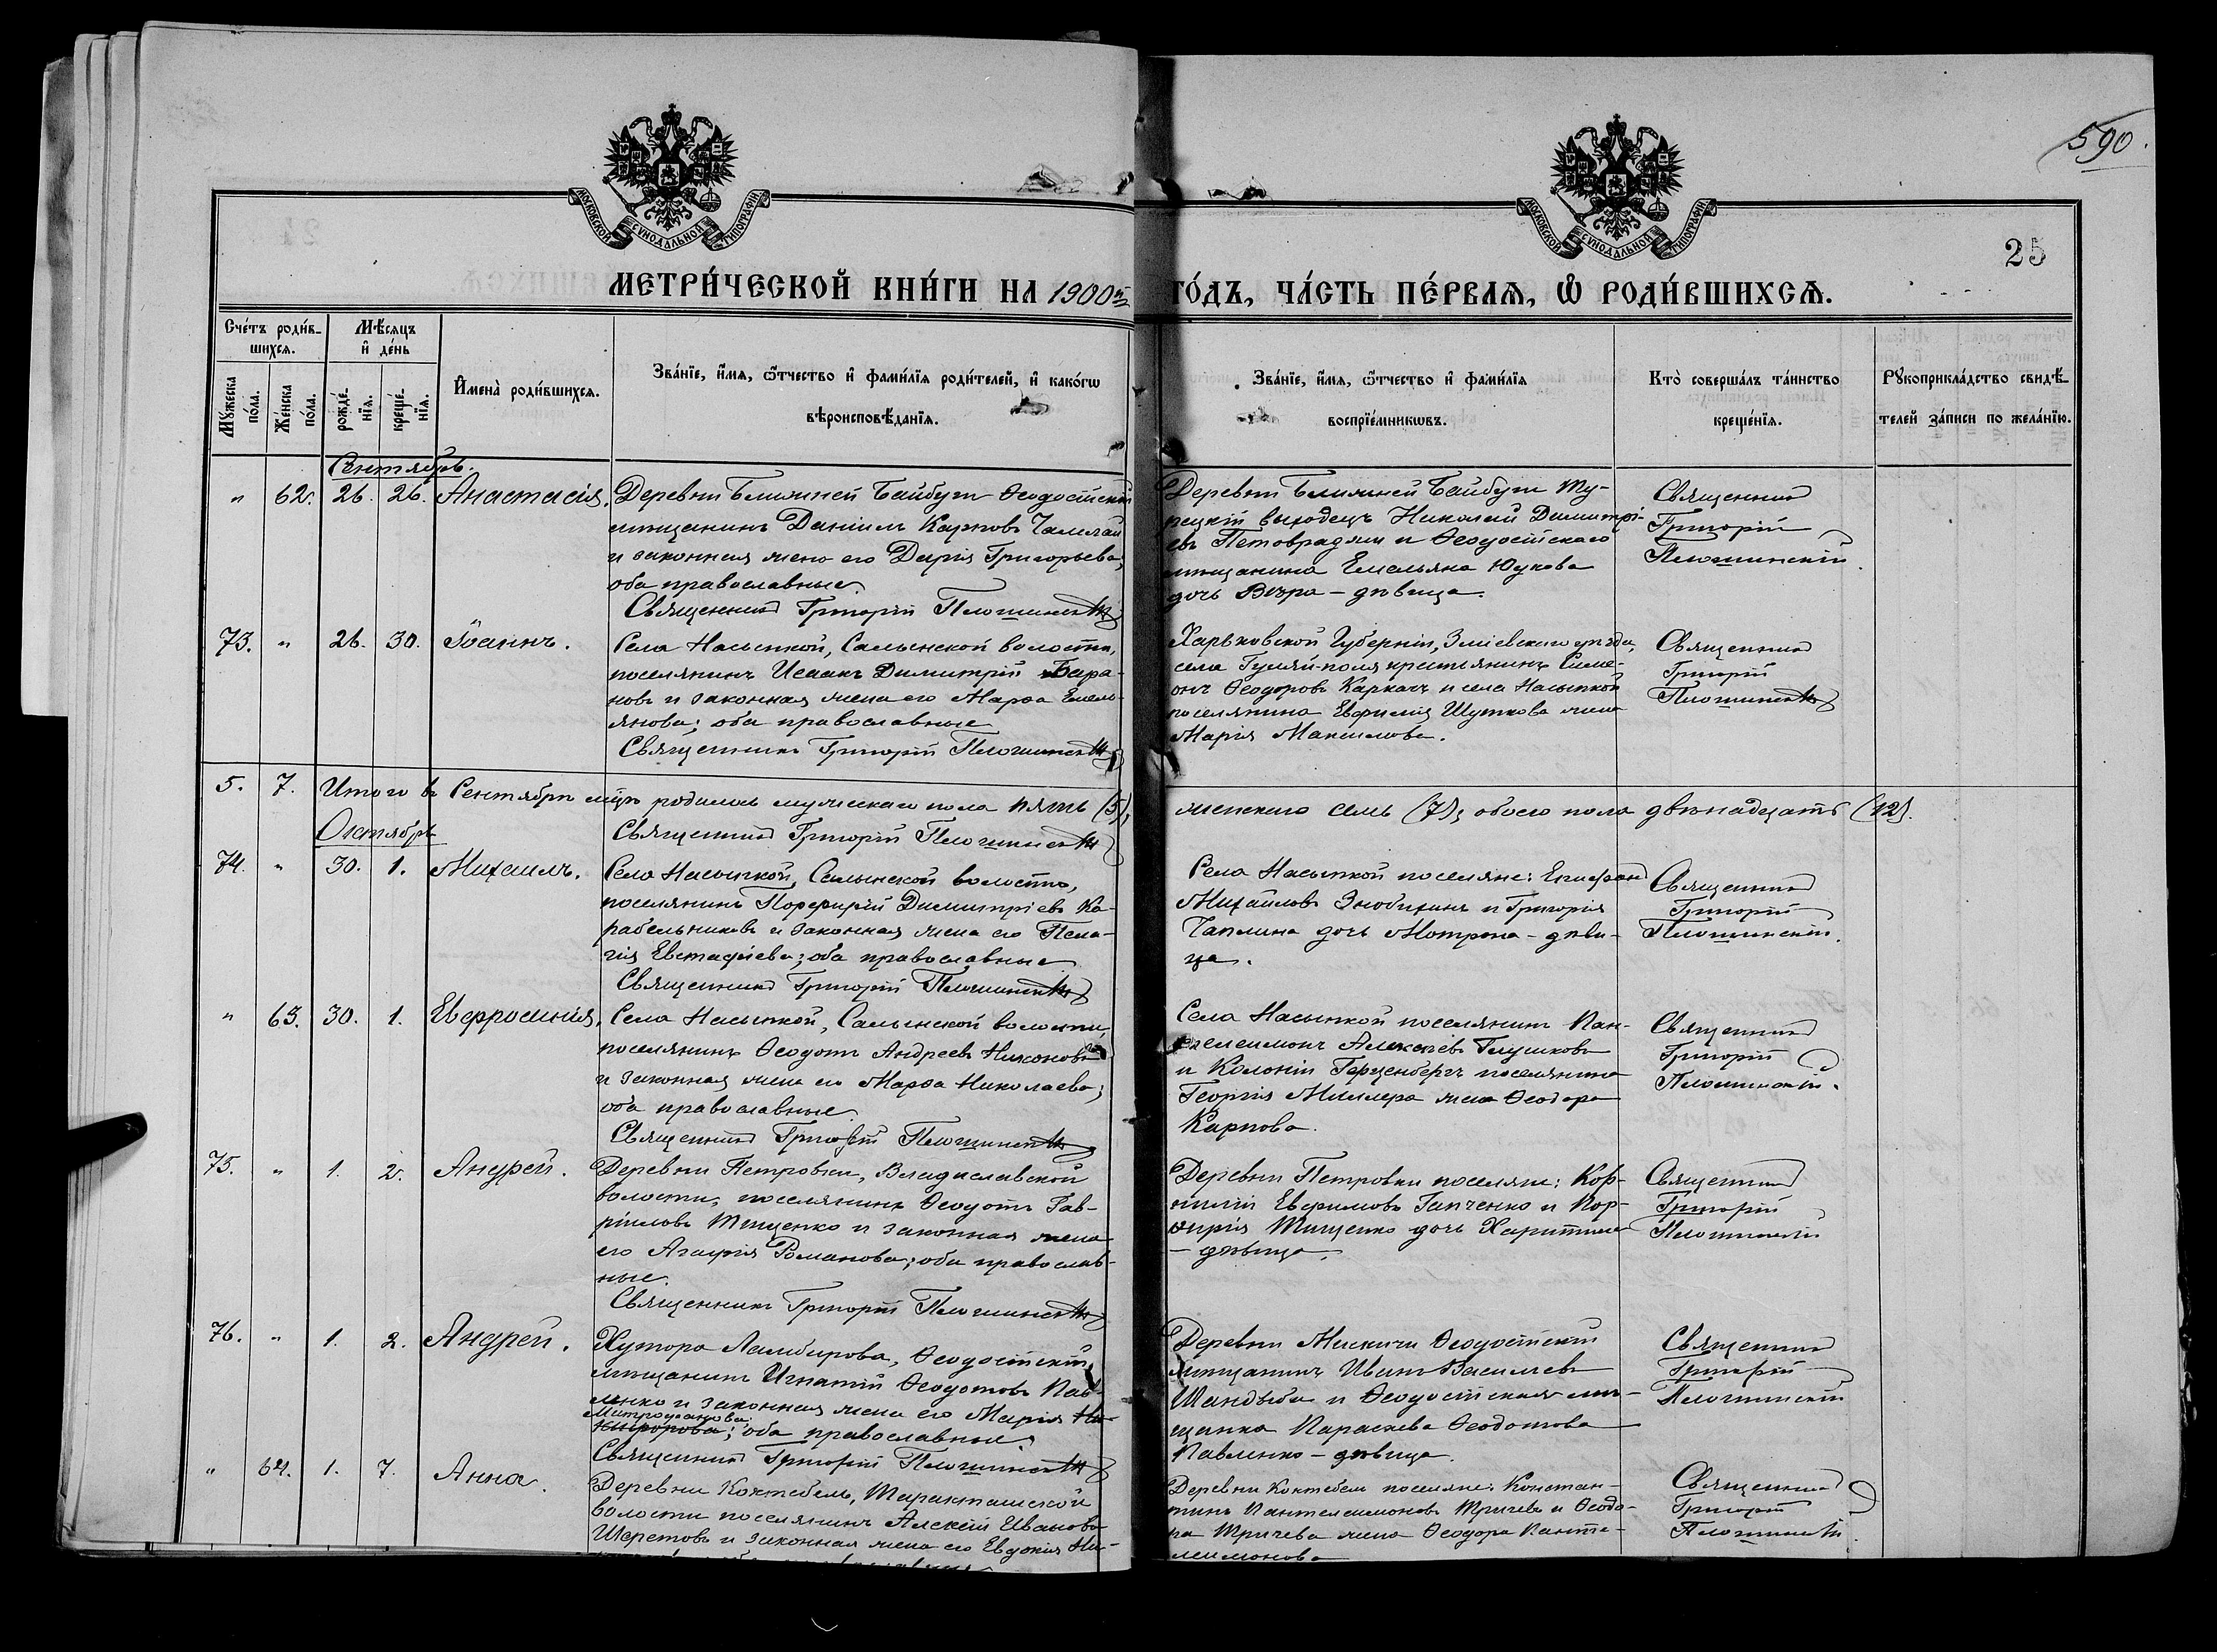 590.
МОСКОВСКОЙ СѴНОДАЛЬНОЙ ТИПОГРАФІИ
МОСКОВСКОЙ СѴНОДАЛЬНОЙ ТИПОГРАФІИ
25
МЕТРИ́ЧЕСКОЙ КНИ́ГИ НА 1900й ГО́ДЪ, ЧА́СТЬ ПЕ́РВАѦ, Ѡ҆ РОДИ́ВШИХСѦ.
Сче́тъ роди́в-
шихсѧ.
Мѣ́сѧцъ
и҆ де́нь
Мꙋ́жеска по́ла.
Же́нска по́ла.
рожде́-
нїѧ.
креще́-
нїѧ.
И҆мена̀ роди́вшихсѧ.
Зва́нїе, и҆́мѧ, ѻ҆́тчество и҆ фами́лїѧ роди́телей, и҆ како́гѡ
вѣроисповѣ́данїѧ.
Зва́нїе, и҆́мѧ, ѻ҆́тчество и҆ фами́лїѧ
воспрїе́мникѡвъ.
Кто̀ соверша́лъ та́инство
креще́нїѧ.
Рꙋкоприкла́дство свидѣ́-
телей за́писи по жела́нїю.
Сентябрь.
" 62. 26. 26. Анастасія.
Деревни Ближней Байбуги Ѳеодосійскій
мѣщанинъ Даніилъ Карповъ
и законная жена его Дарія Григорьева,
оба православные.
Священникъ Григорій Плошинскій
Деревни Ближней Байбуги Ту-
рецкій выходецъ Николай Димитрі-
евъ и Ѳеодосійскаго
мѣщанина Емельяна Юукова
дочь Вѣра – дѣвица.
Священникъ
Григорій
Плошинскій.
73. " 26. 30. Іоаннъ.
Села Насыпкой, Салынской волости,
поселянинъ Исаакъ Димитрій Бара-
новъ и законная жена его Марѳа Емель-
янова; оба православные
Священникъ Григорій Плошинскій
Харьковской Губерніи, Зміевского уѣзда,
села Гуляй-поля крестьянинъ Симе-
онъ Ѳеодоровъ Каркачъ и села Насыпкой
поселянина Евфимія Шуткова жена
Марія Максимова.
Священникъ
Григорій
Плошинскій
5. 7. Итого въ Сентябрѣ мѣцѣ родилось мужескаго пола пять (5), женскаго семь (7); обоего пола двѣнадцать (12).
Священникъ Григорій Плошинскій
Октябрь
74. " 30. 1. Михаилъ.
Села Насыпкой, Салынской волости,
поселянинъ Порфирій Димитріевъ Ка-
рабельниковъ и законная жена его Пела-
гія Евстафіева; оба православные
Священникъ Григорій Плошинскій
Села Насыпкой поселяне: Епифанъ
Михайловъ Знобихинъ и Григорія
Чаплина дочь Мотрона – дѣви-
ца.
Священникъ
Григорій
Плошинскій.
" 63. 30. 1. Евфросинія.
Села Насыпкой, Салынской волости,
поселянинъ Ѳеодотъ Андреевъ Никоновъ
и законная жена его Марѳа Николаева;
оба православные
Священникъ Григорій Плошинскій
Села Насыпкой поселянинъ Пан-
телеимонъ Алексѣевъ Глушковъ
и Колоніи Герценбергъ поселянина
Георгія Миллера жена Ѳеодора
Карпова.
Священникъ
Григорій
Плошинскій.
75. " 1. 2. Андрей.
Деревни Петровки, Владиславской
волости, поселянинъ Ѳеодотъ Гав-
ріиловъ Тищенко и законная жена
его Агафія Романова; оба православ-
ные.
Священникъ Григорій Плошинскій
Деревни Петровки поселяне: Кор-
нилій Евфимовъ Гапченко и Пор-
фирія Тищенко дочь Харитина
– дѣвица.
Священникъ
Григорій
Плошинскій
76. " 1. 2. Андрей.
Хутора Ламбирова, Ѳеодосійскій
мѣщанинъ Игнатій Ѳеодотовъ Пав-
ленко и законная жена его Марія Ни-
Митрофанова
кифорова; оба православные.
Священникъ Григорій Плошинскій
Деревни Мискичи Ѳеодосійскій
мѣщанинъ Иванъ Васильевъ
Шандыба и Ѳеодосійская мѣ-
щанка Параскева Ѳеодотова
Павленко – дѣвица.
Священникъ
Григорій
Плошинскій
" 64. 1. 7. Анна.
Деревни Коктебель, Таракташской
волости поселянинъ Алексій Ивановъ
Шеретовъ и законная жена его Евдокія Ни-
Деревни Коктебель поселяне: Констан-
тинъ Пантелеимоновъ Тричевъ и Ѳеодо-
ра Тричева жена Ѳеодора Панте-
леимонова
Священникъ
Григорій
Плошинскій.